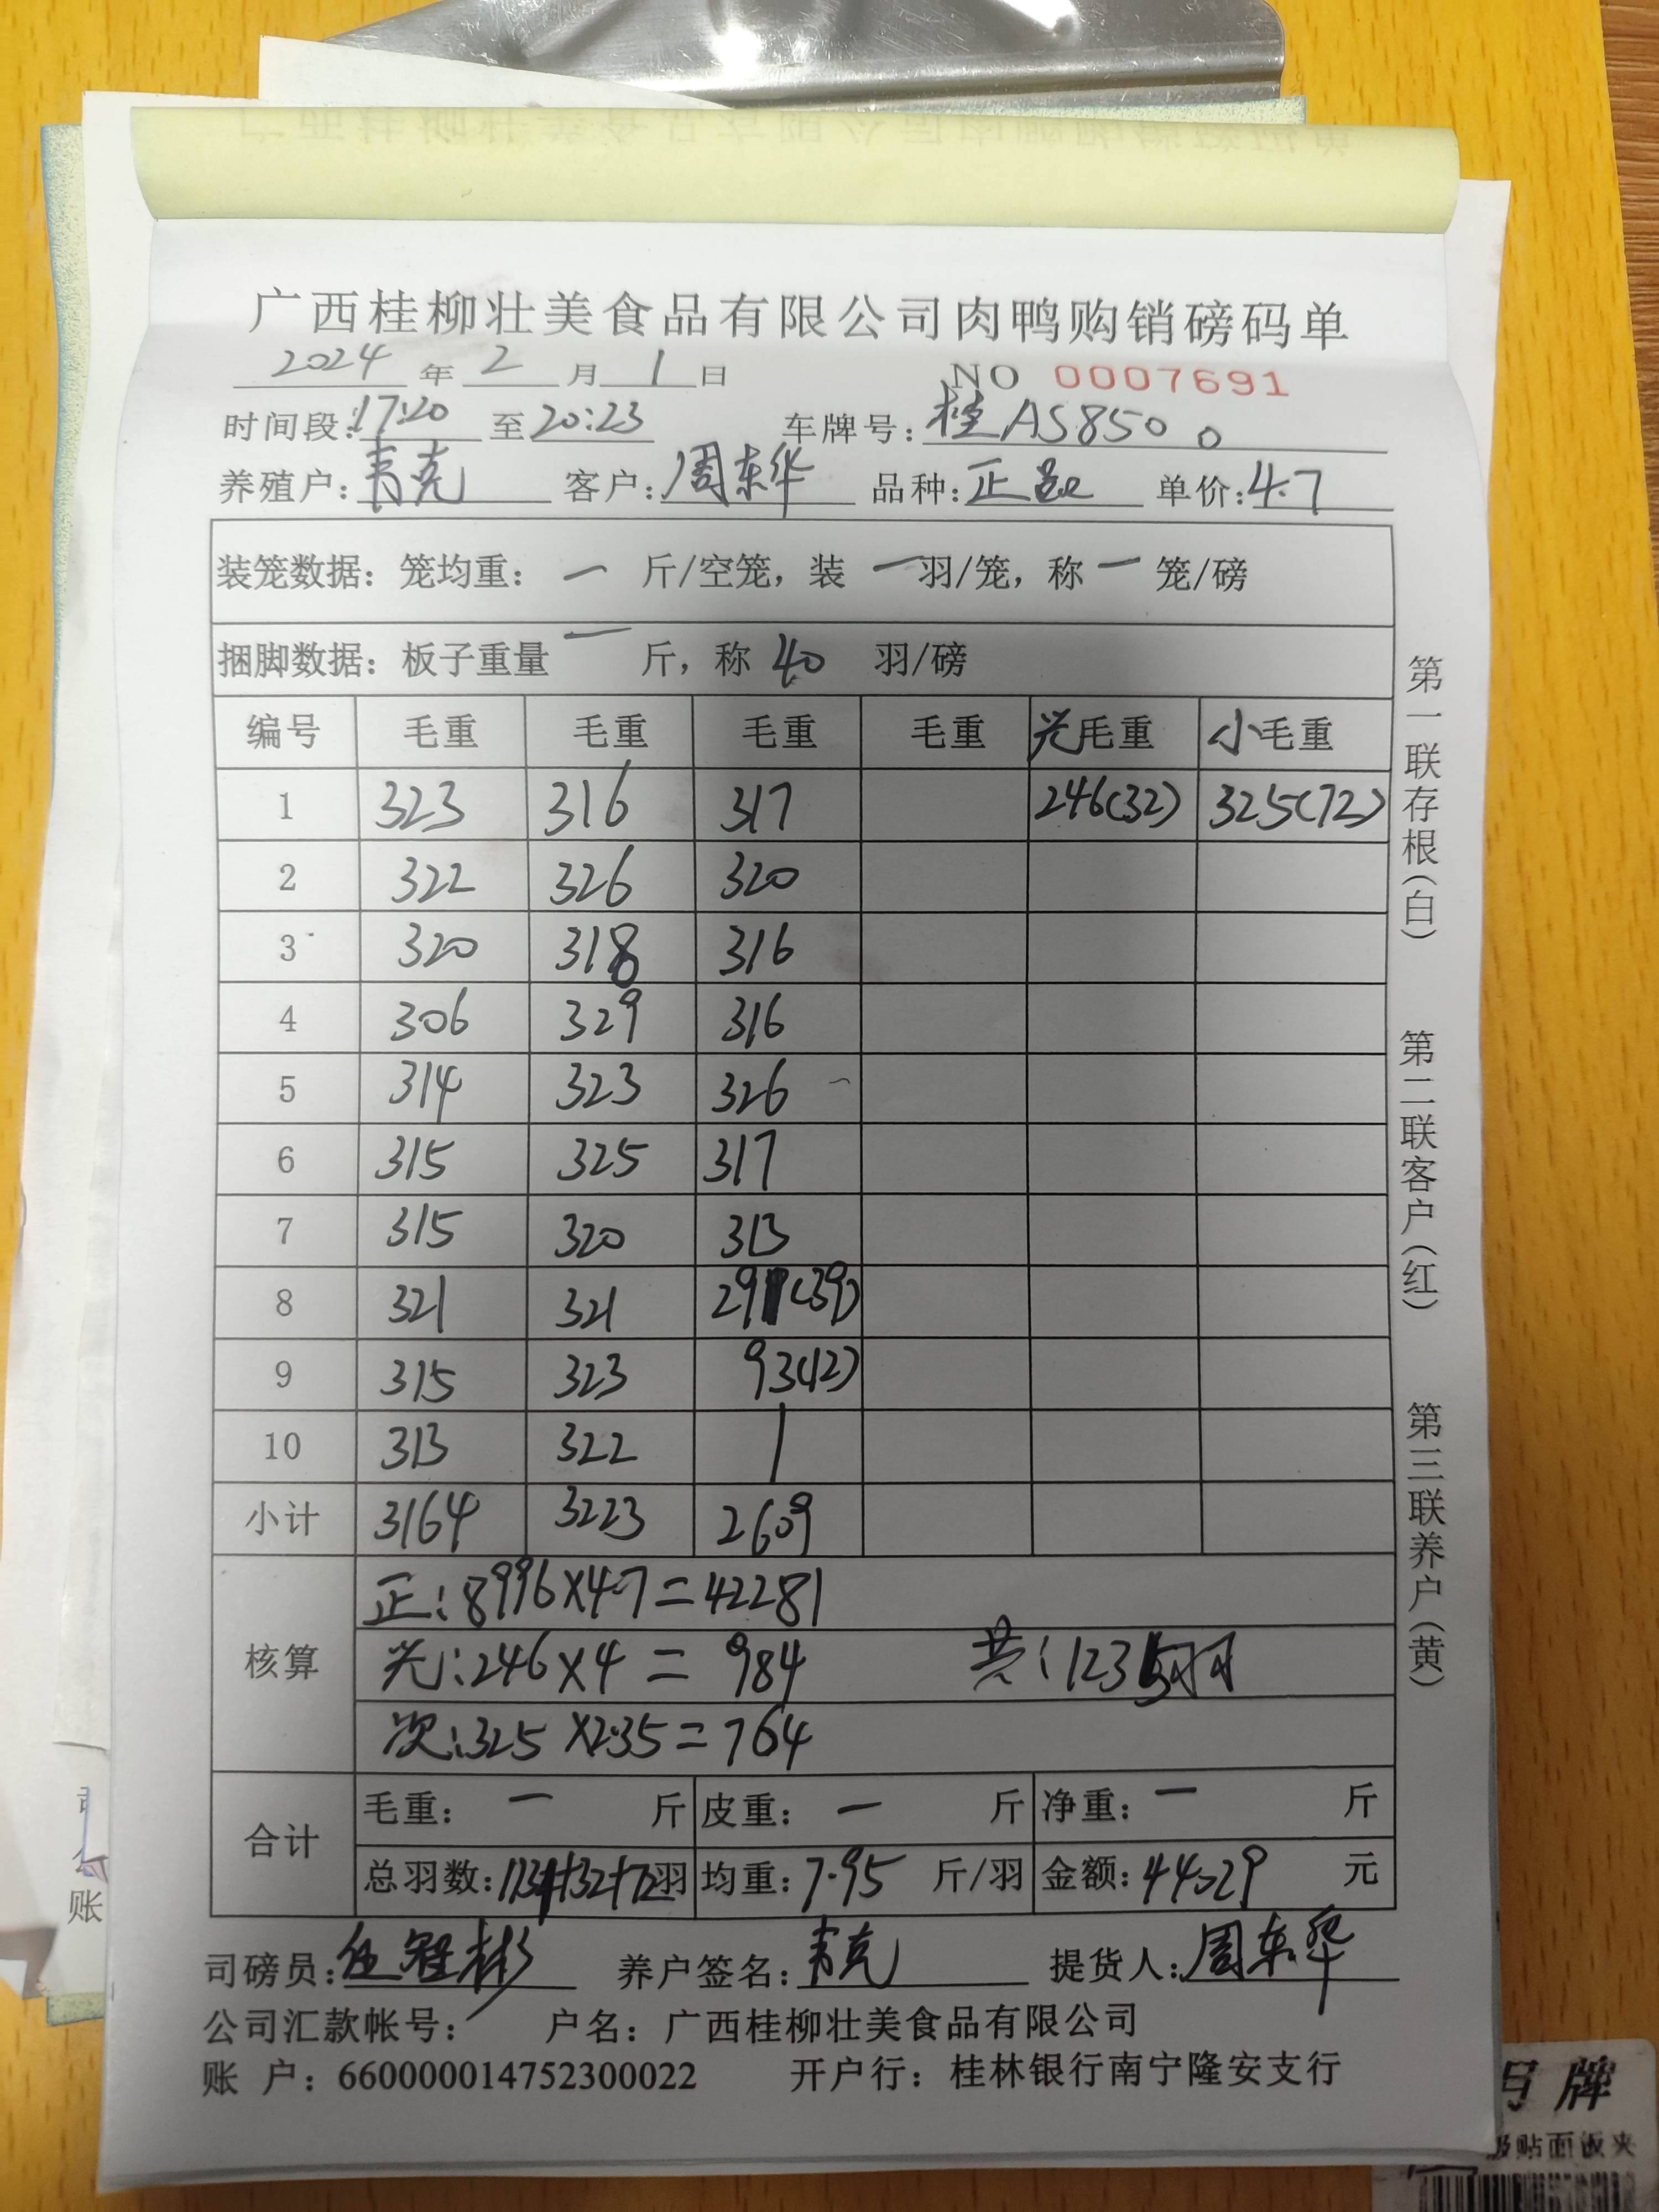 广西桂柳壮美食品有限公司肉鸭购销磅码单
2024 年 2 月 1 日 NO 0007691
时间段:17:20 至 20:23 车牌号:桂AS8500
养殖户:韦克 客户:周东华 品种:正 单价:4.7
装笼数据:笼均重: 一 斤/空笼,装 一 羽/笼,称 一 笼/磅
捆脚数据:板子重量 一 斤,称 40 羽/磅
编号 毛重 毛重 毛重 毛重 光毛重 小毛重
1 323 316 317 246(32) 325(72)
2 322 326 320
3 320 318 316
4 306 329 316
5 314 323 326
6 315 325 317
7 315 320 313
8 321 321 291(39)
9 315 323 93(12)
10 313 322
小计 3164 3223 2609
核算
正:8996×4.7=42281
光:246×4=984 共:1235羽
次:325×2.35=764
合计
毛重: 一 斤 皮重: 一 斤 净重: 一 斤
总羽数:1131+32+72羽 均重:7.95 斤/羽 金额:44029 元
司磅员: 养户签名:韦克 提货人:周东华
公司汇款帐号: 户名:广西桂柳壮美食品有限公司
账 户:660000014752300022 开户行:桂林银行南宁隆安支行
第一联存根(白)
第二联客户(红)
第三联养户(黄)
账
牌
贴面板夹